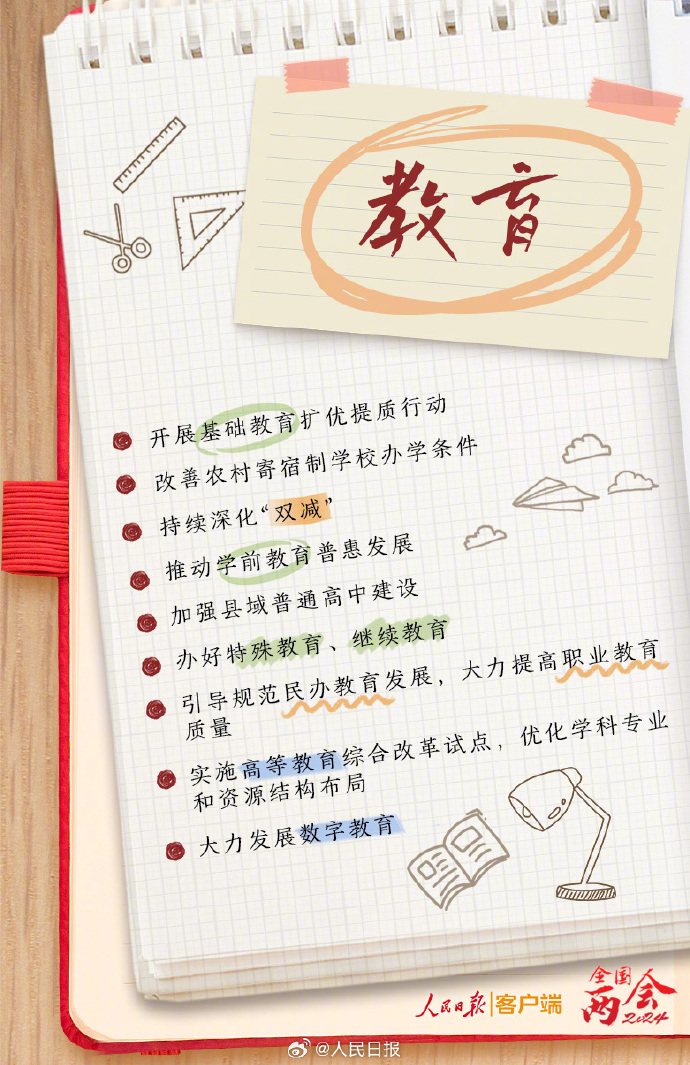 教育
开展基础教育扩优提质行动
改善农村寄宿制学校办学条件
持续深化“双减”
推动学前教育普惠发展
加强县域普通高中建设
办好特殊教育、继续教育
引导规范民办教育发展，大力提高职业教育
质量
实施高等教育综合改革试点，优化学科专业
和资源结构布局
大力发展数字教育
人民日报|客户端
全国
两会
2024
@人民日报